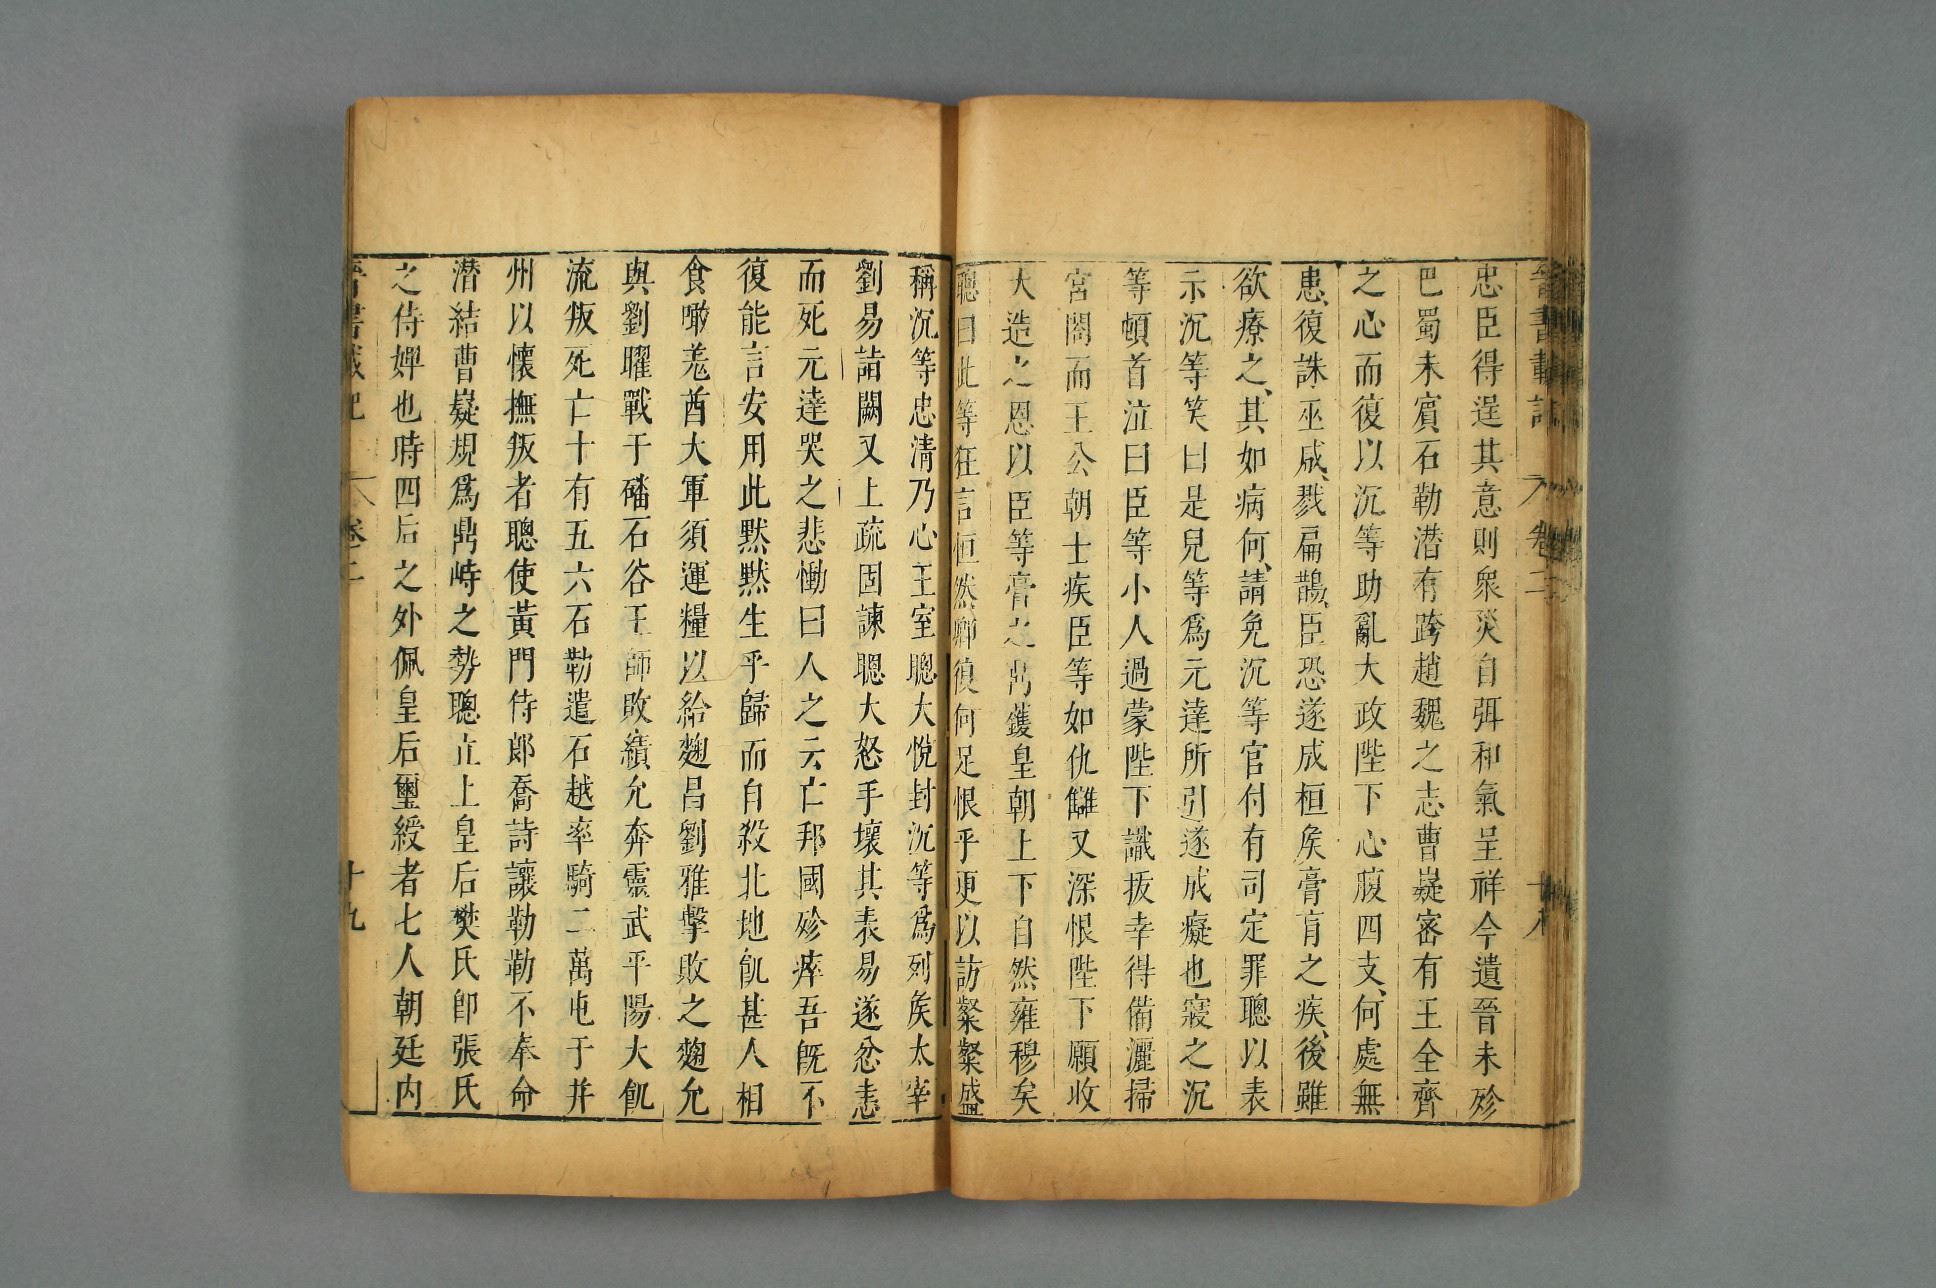 晉書載記 卷二 十八
忠臣得逞其意則眾災自弭和氣呈祥今遺晉未殄
巴蜀未賓石勒潛有跨趙魏之志曹嶷密有王全齊
之心而復以沉等助亂大政陛下心腹四支何處無
患復誅巫咸戮扁鵲臣恐遂成桓矦膏肓之疾後雖
欲療之其如病何請免沉等官付有司定罪聰以表
示沉等笑曰是兒等爲元達所引遂成癡也寢之沉
等頓首泣曰臣等小人過蒙陛下識拔幸得備灑掃
宮閤而王公朝士疾臣等如仇讎又深恨陛下願收
大造之恩以臣等膏之鼎鑊皇朝上下自然雍穆矣
聰曰此等狂言恒然卿復何足恨乎更以訪粲粲盛
稱沉等忠清乃心王室聰大悅封沉等爲列矦太宰
劉易詣闕又上疏固諫聰大怒手壞其表易遂忿恚
而死元達哭之悲慟曰人之云亡邦國殄瘁吾旣不
復能言安用此黙黙生乎歸而自殺北地飢甚人相
食噉羌酋大軍須運糧以給麴昌劉雅擊敗之麴允
與劉曜戰于磻石谷王師敗績允奔靈武平陽大飢
流叛死亡十有五六石勒遣石越率騎二萬屯于并
州以懷撫叛者聰使黃門侍郎喬詩讓勒勒不奉命
潛結曹嶷規爲鼎峙之勢聰立上皇后樊氏卽張氏
之侍婢也時四后之外佩皇后璽綬者七人朝廷內
晉書載記 卷二 十九